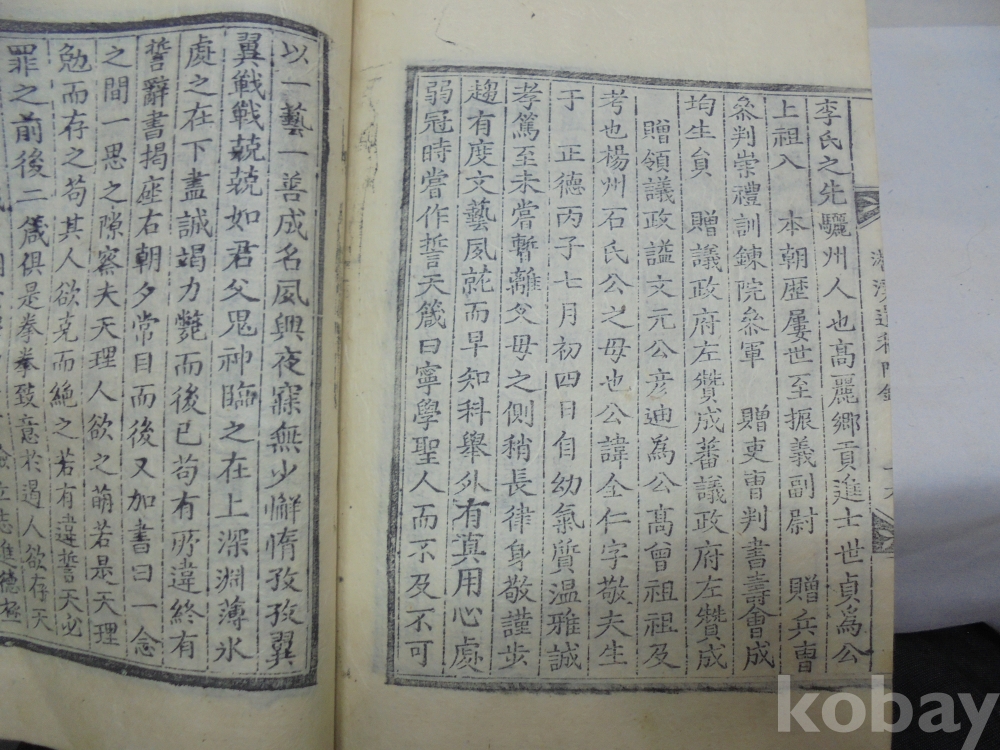 李氏之先驪州人也高麗鄉貢進士世貞為公
上祖入 本朝歷屢世至振義副尉 贈兵曺
叅判崇禮訓鍊院叅軍 贈吏曺判書壽會成
均生員 贈議政府左贊成蕃議政府左贊成
贈領議政謚文元公彦迪為公高曾祖祖及
考也楊州石氏公之母也公諱全仁字敬夫生
于 正德丙子七月初四日自幼氣質温雅誠
孝篤至未嘗暫離父母之側稍長律身敬謹步
趨有度文藝夙就而早知科舉外有真用心處
弱冠時嘗作誓天箴曰寧學聖人而不及不可
以一藝一善成名夙興夜寐無少懈惰孜孜翼
翼戰戰兢兢如君父鬼神臨之在上深淵薄氷
處之在下盡誠竭力斃而後已苟有所違終有
誓辭書揭座右朝夕常目而後又加書曰一念
之間一思之隙察夫天理人欲之萌若是天理
勉而存之苟其人欲克而絶之若有違誓天必
罪之前後二箴俱是拳拳致意於遏人欲存天
立志進德極
kobay